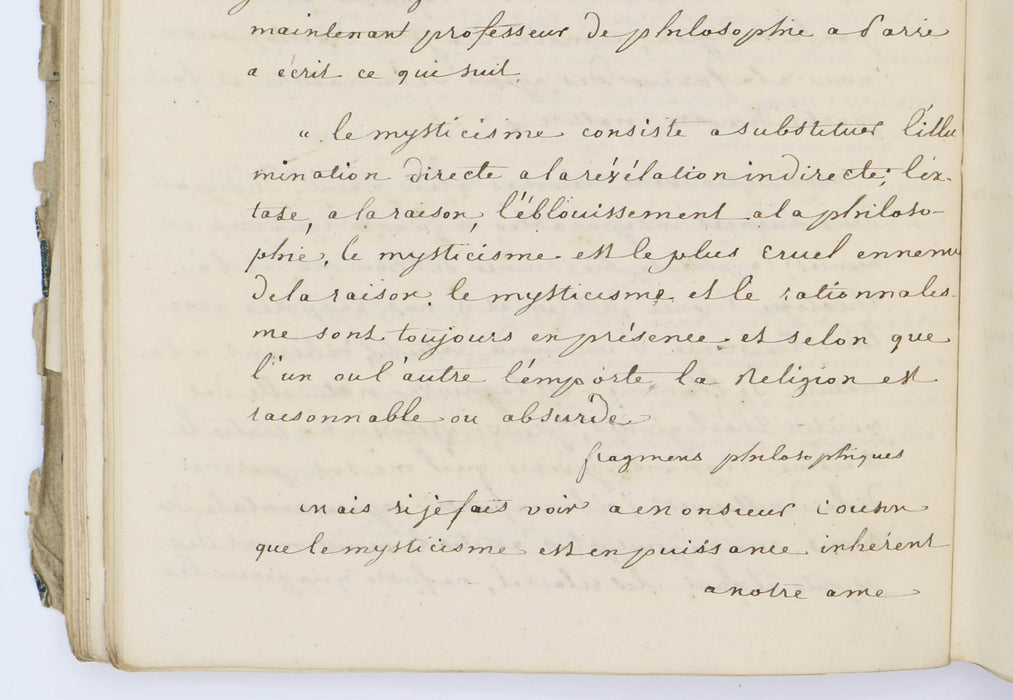 maintenant professeur de philosophie a Parrie
a écrit ce qui suit
" le mysticisme consiste a substituer l'illu
mination directe a la révélation indirecte; l'ex-
tase, a la raison, l'éblouissement a la philoso-
phie, le mysticisme est le plus cruel ennemi
de la raison, le mysticisme et le rationnales-
me sont toujours en présence et selon que
l'un ou l'autre l'émporte la Religion est
raisonnable ou absurde
fragmens philosophiques
mais si je fais voir a monsieur cousin
que le mysticisme est en puissance inhérent
a notre ame